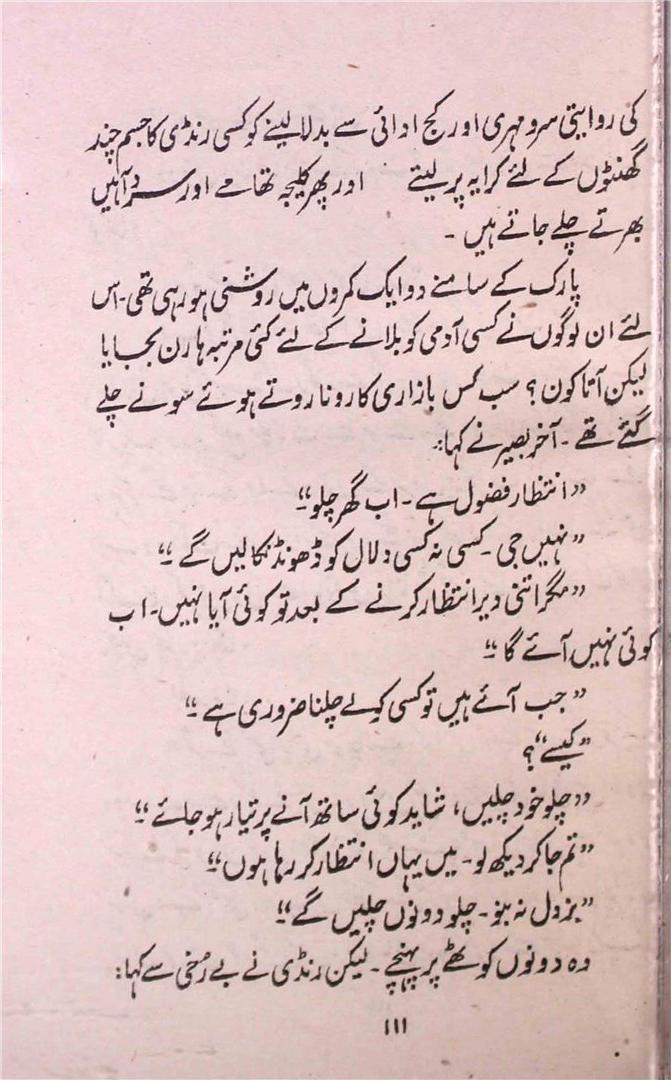 کی روایتی سرد مہری اور کج ادائی سے بدلا لینے کو کسی رنڈی کا جسم چند
گھنٹوں کے لئے کرایہ پر لیتے اور پھر کلیجہ تھامے اور سرد آہیں
بھرتے چلے جاتے ہیں ۔
پارک کے سامنے دو ایک کمروں میں روشنی ہو رہی تھی ۔ اس
لئے ان لوگوں نے کسی آدمی کو بلانے کے لئے کئی مرتبہ ہارن بجایا
لیکن آتا کون ؟ سب کس بازاری کا رونا روتے ہوئے سونے چلے
گئے تھے ۔ آخر بصیر نے کہا :
”انتظار فضول ہے ۔ اب گھر چلو۔“
”نہیں جی ۔ کسی نہ کسی دلال کو ڈھونڈ نکالیں گے ۔“
”مگر اتنی دیر انتظار کرنے کے بعد تو کوئی آیا نہیں ۔ اب
کوئی نہیں آئے گا ۔“
”جب آئے ہیں تو کسی کو لے چلنا ضروری ہے ۔“
”کیسے“؟
”چلو خود چلیں، شاید کوئی ساتھ آنے پر تیار ہو جائے ۔“
”تم جا کر دیکھ لو ۔ میں یہاں انتظار کر رہا ہوں۔“
”بزدل نہ بنو ۔ چلو دونوں چلیں گے۔“
وہ دونوں کوٹھے پر پہنچے ۔ لیکن رنڈی نے بے رُخی سے کہا :
۱۱۱